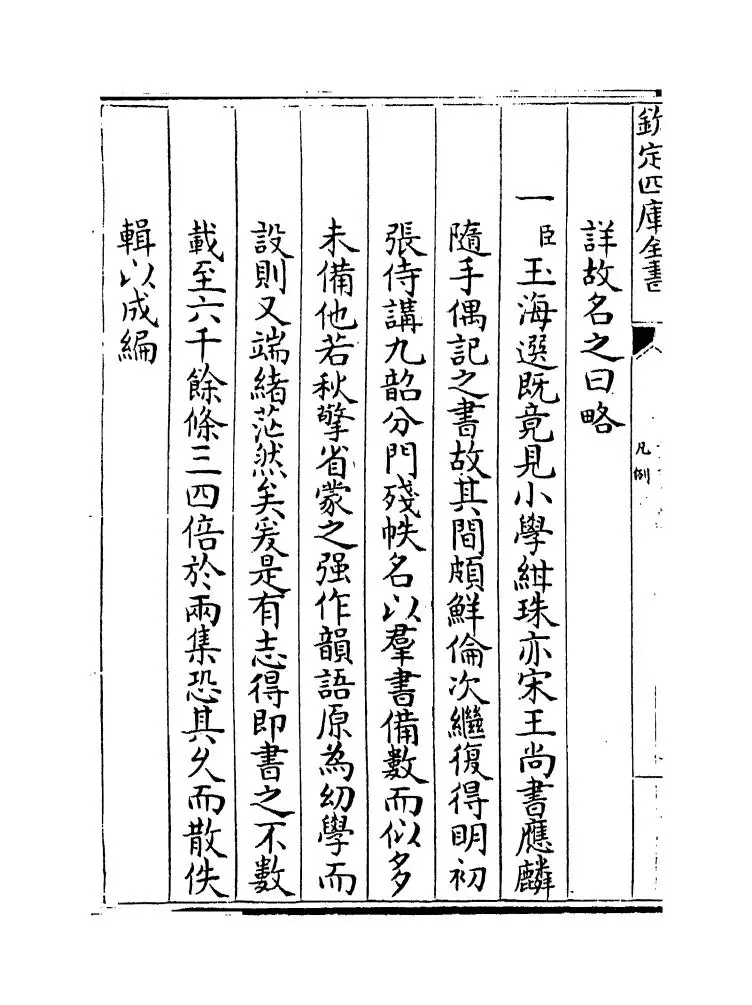 欽定四庫全書
凡例
詳故名之曰略
一臣玉海選既竟見小學紺珠亦宋王尚書應麟
隨手偶記之書故其間頗鮮倫次繼復得明初
張侍講九韶分門殘帙名以羣書備數而似多
未備他若秋擎省蒙之强作韻語原為幼學而
設則又端緒茫然矣爰是有志得即書之不數
載至六千餘條三四倍於兩集恐其久而散佚
輯以成編